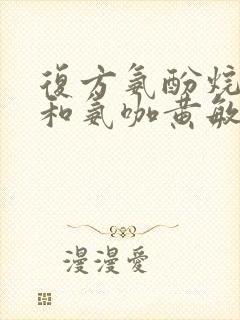 復方氨酚烷
和氨咖黄敏
漫漫愛